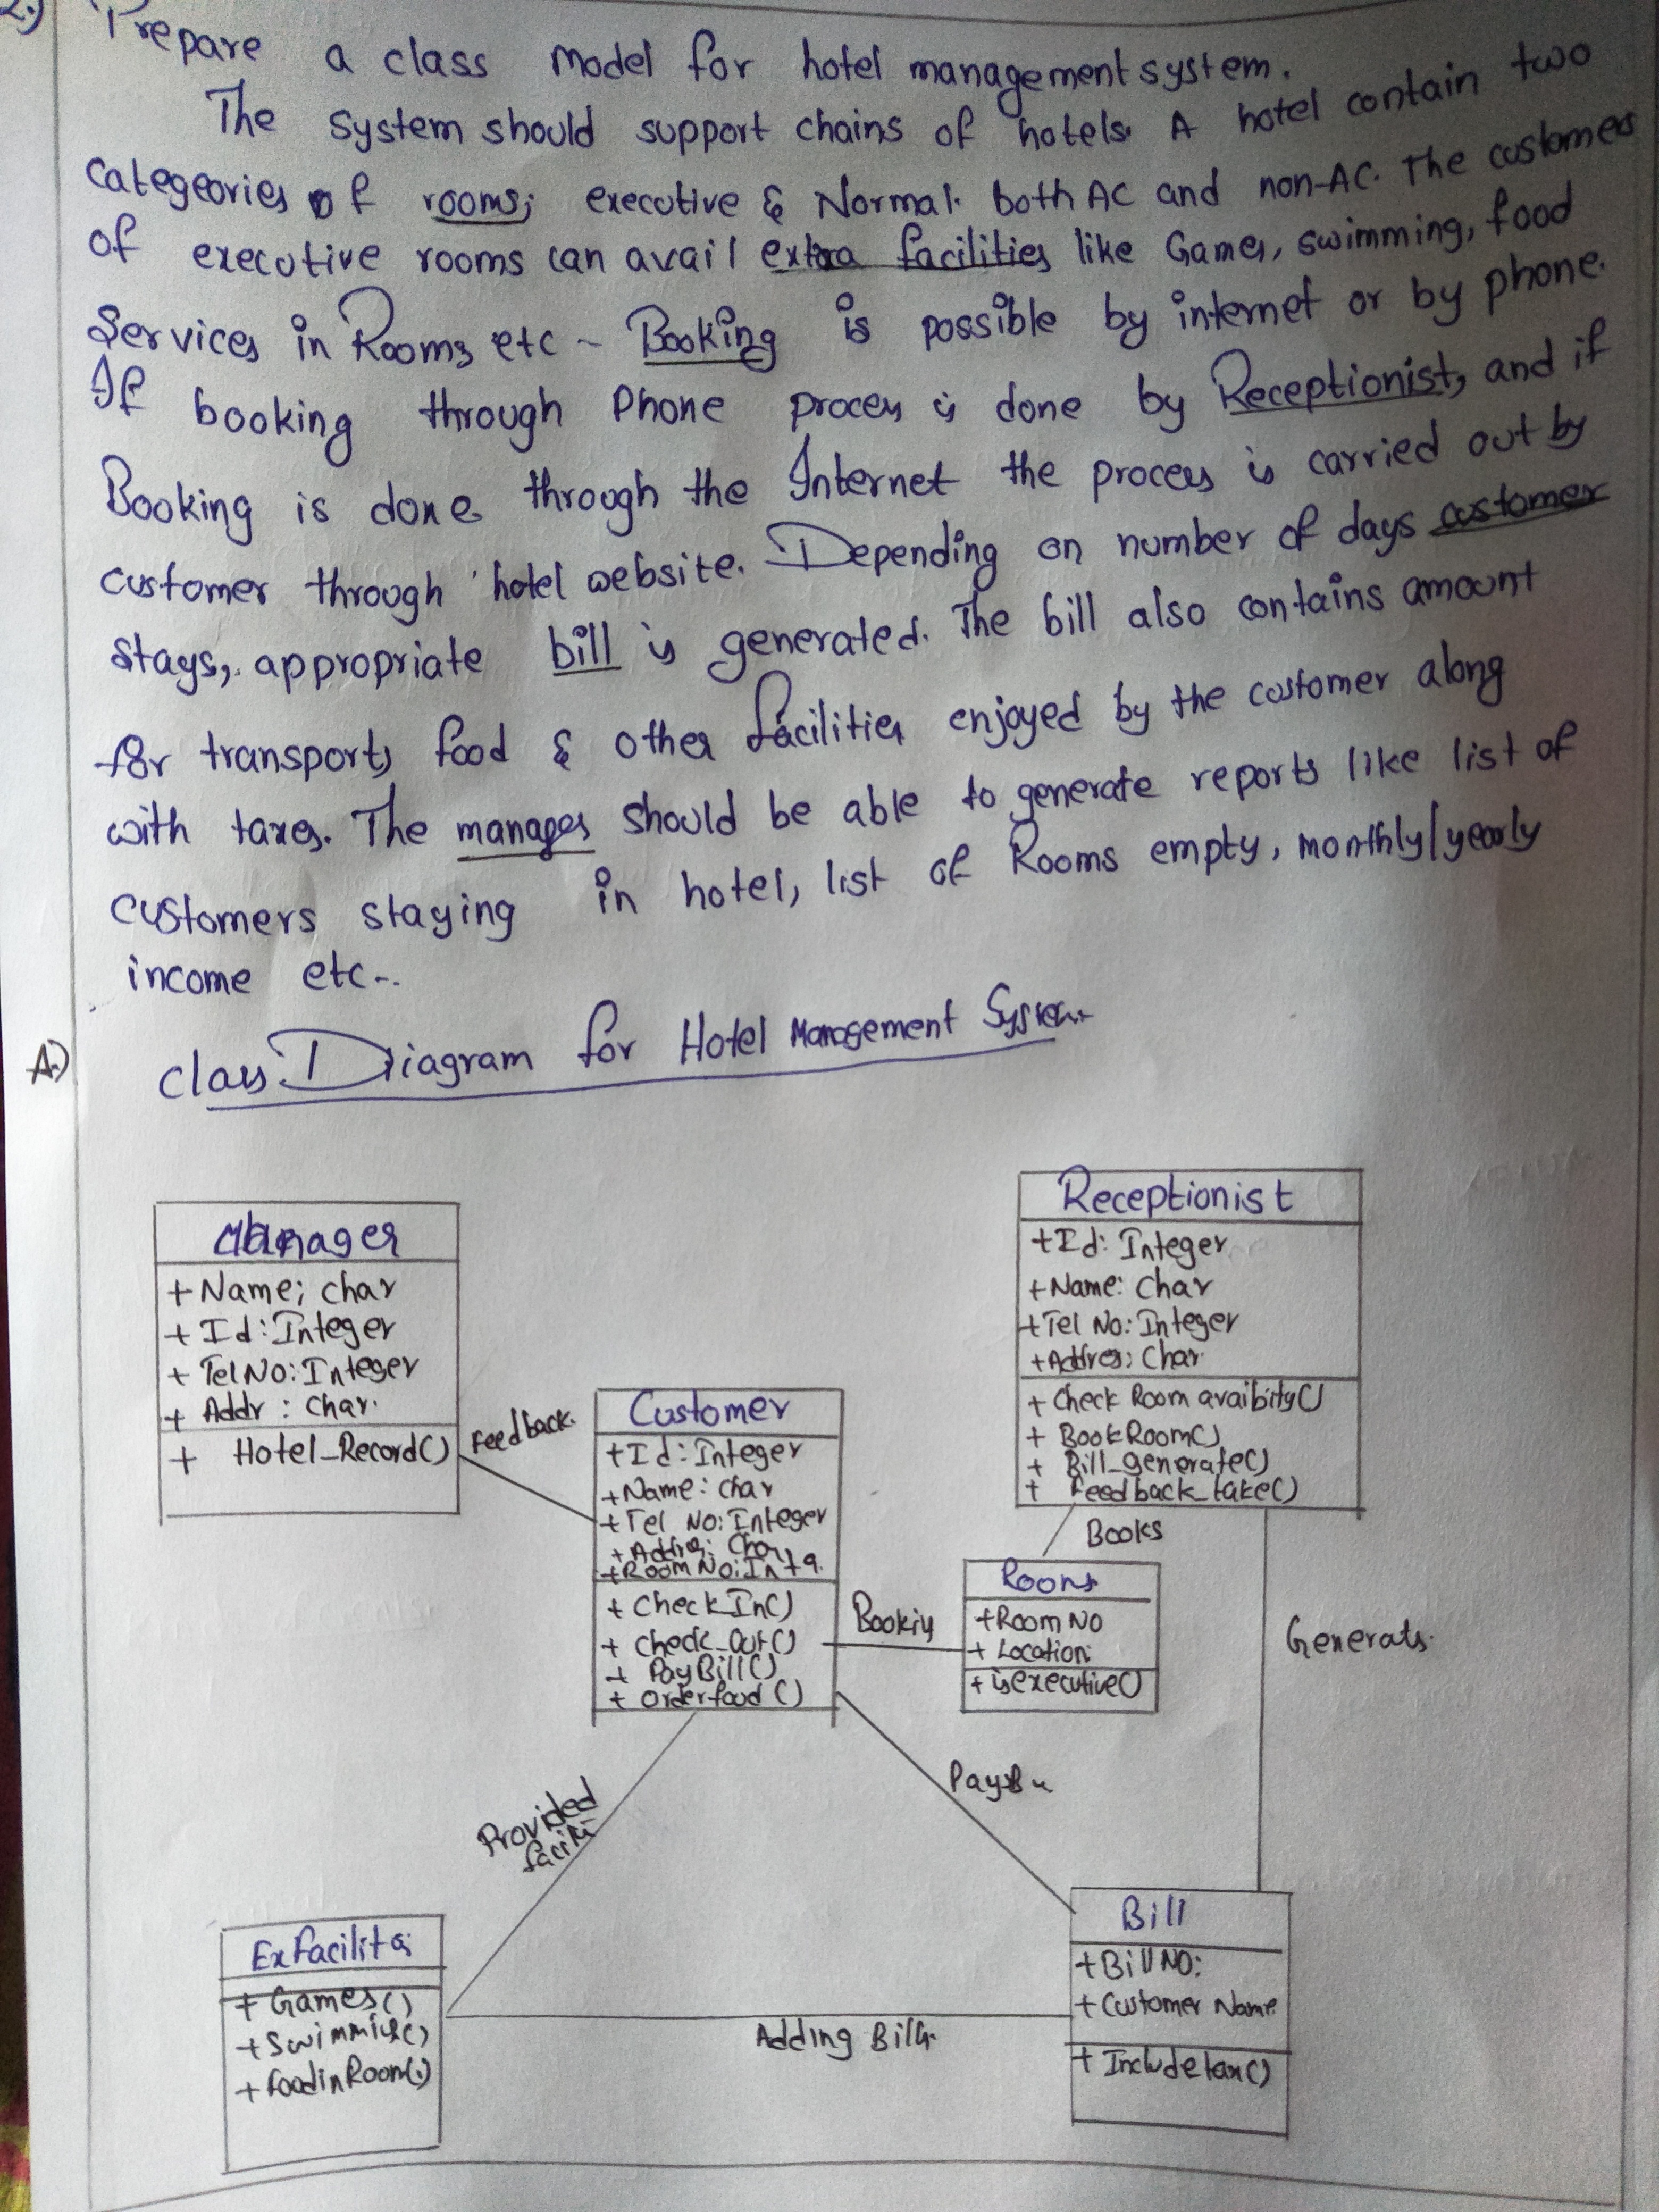 2.)
Prepare a class model for hotel management system.
The system should support chains of hotels. A hotel contain two
Categeories of rooms; executive & Normal. both AC and non-AC. The customers
of executive rooms can avail extra facilities like Games, swimming, food
Services in Rooms etc - Booking is possible by internet or by phone.
If booking through Phone process is done by Receptionist, and if
Booking is done through the Internet the process is carried out by
customer through hotel website. Depending on number of days customer
stays, appropriate bill is generated. The bill also contains amount
for transport, food & other facilities enjoyed by the customer along
with taxes. The manages should be able to generate reports like list of
customers staying in hotel, list of Rooms empty, monthly/yearly
income etc..
A.)
class Diagram for Hotel Management System
Manager
+ Name; char
+ Id: Integer
+ TelNo: Integer
+ Addr : Char.
+ Hotel_Record()
Feedback.
Customer
+Id: Integer
+Name: char
+Tel No: Integer
+RoomNo: Intg.
+ Check_In()
+ Check_Out()
+ PayBill()
+ Orderfood ()
Receptionist
+Id: Integer
+Name: Char
+Tel No: Integer
+Addres; Char.
+ Check Room avaibirty()
+ BookRoom()
+ Bill_generate()
+ feedback_take()
Books
Rooms
+Room No
+ Location:
+ isexecutive()
Generats.
Provided
Adding Bill
ExFacilitis
+ Games()
+ foodinRoom()
Bill
+Bill NO:
+ Customer Name
+ Includetax()